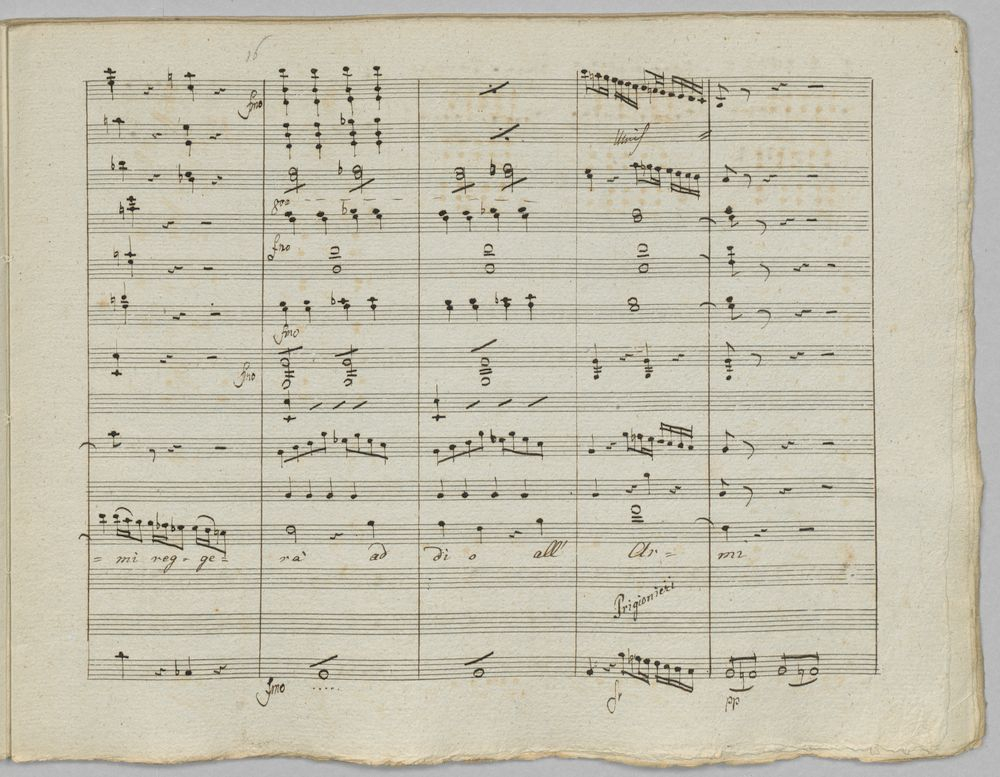 16
fmo
Unis
8va
fmo
fmo
fmo
= mi reg - ge = rà ad di o all' Ar = mi
Prigionieri
fmo
pp